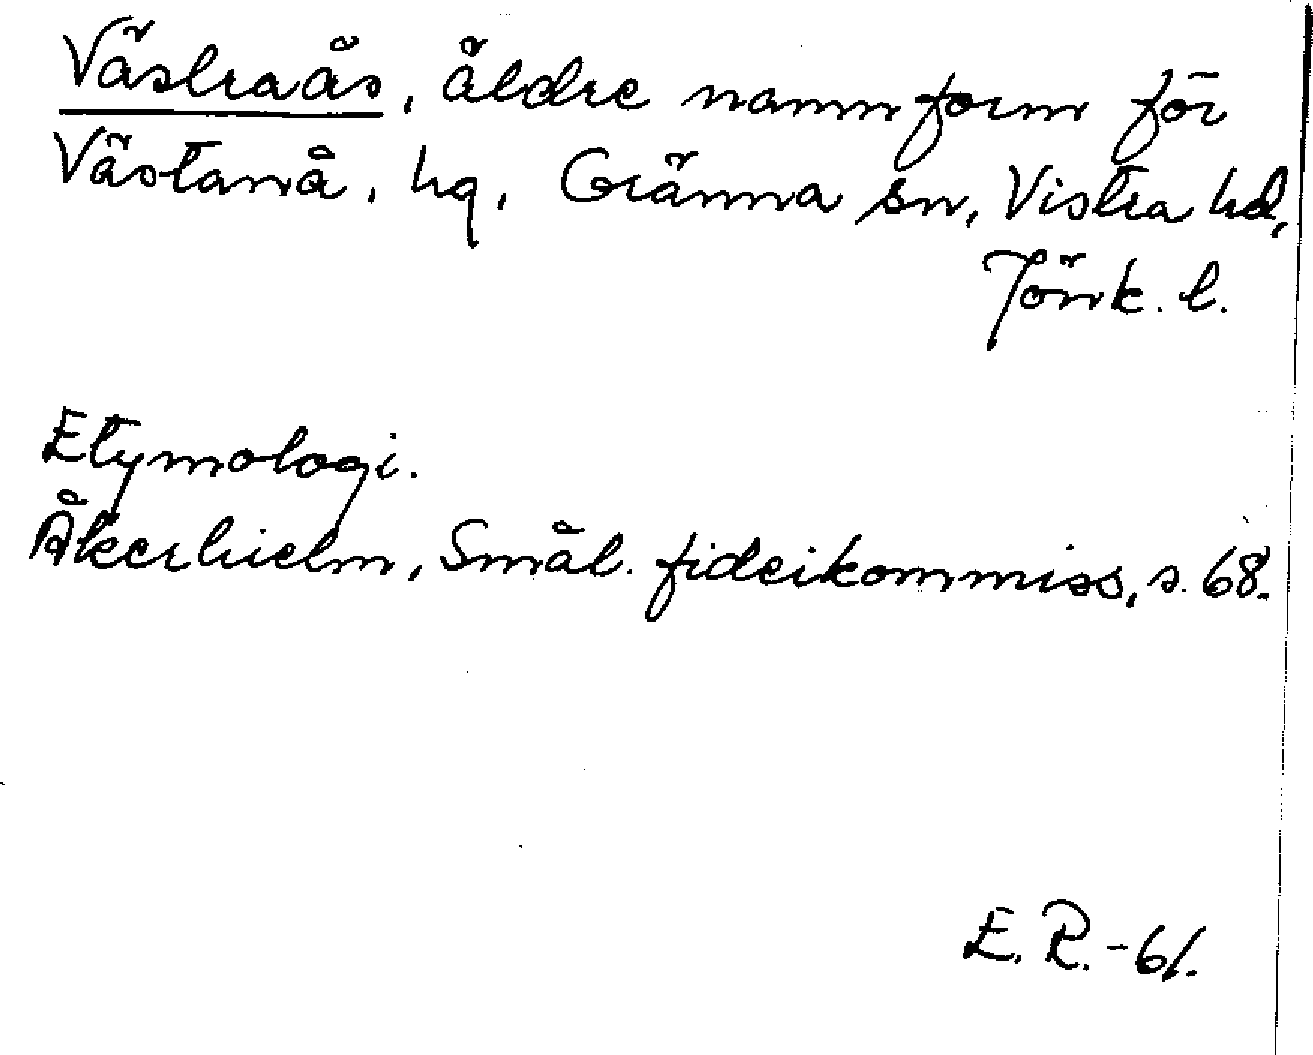 Västraås, äldre namnform för
Västanå, hg, Gränna sn, Vistra hd,
Jönk. l.
Etymologi.
Åkerhielm, Smål. fideikommiss, s. 68.
E. R. -61.